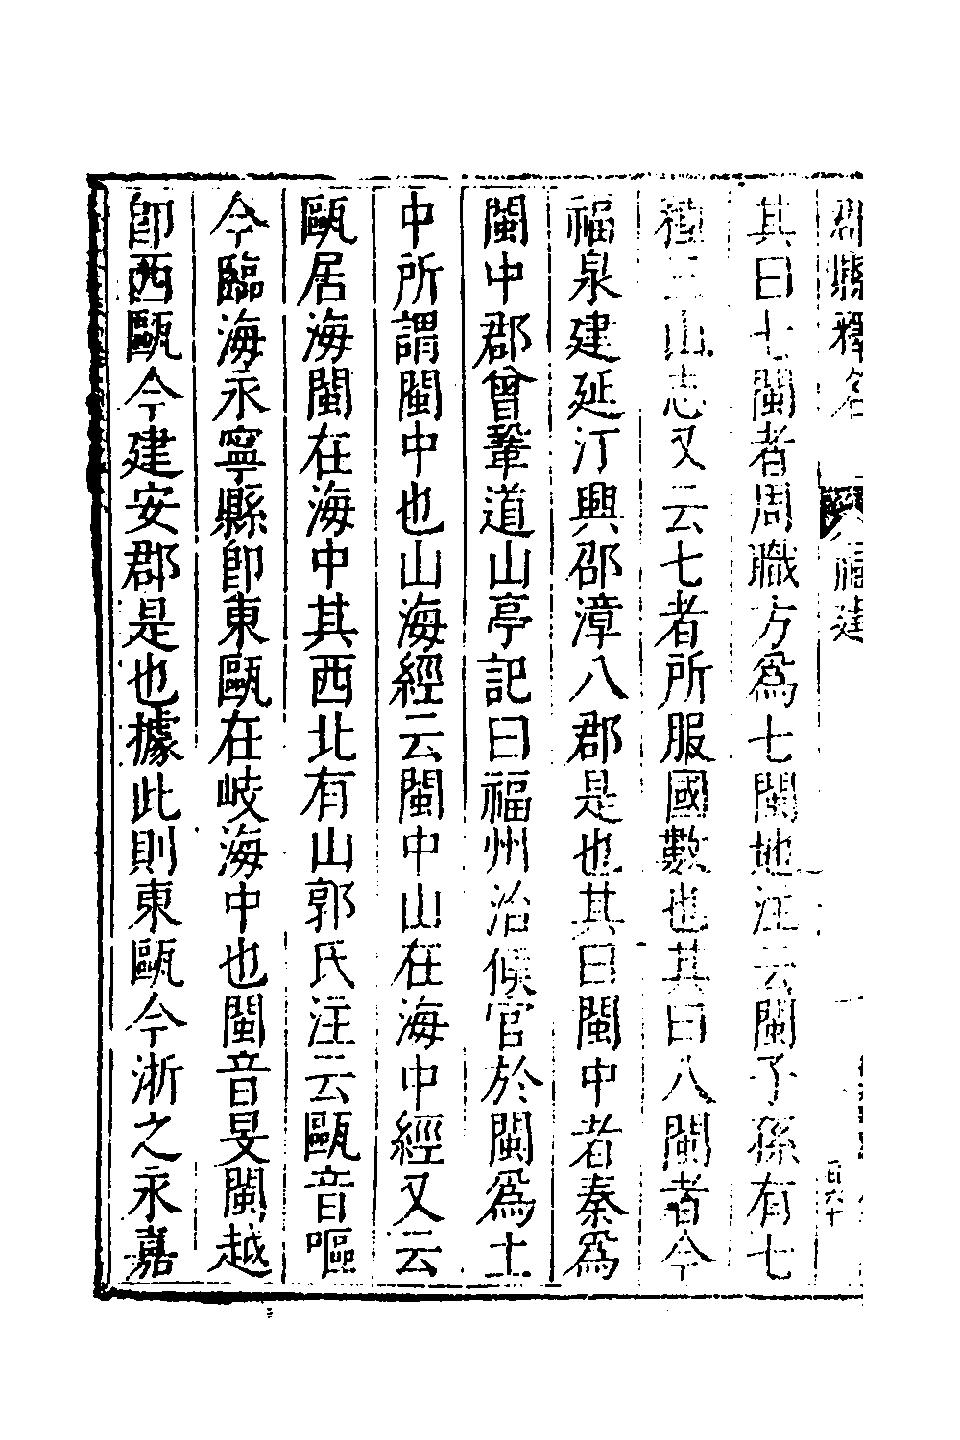 郡縣釋名 福建
其曰七閩者周職方爲七閩地注云閩子孫有七
種三山志又云七者所服國數也其曰八閩者今
福泉建延汀興邵漳八郡是也其曰閩中者秦爲
閩中郡曾鞏道山亭記曰福州治候官於閩爲土
中所謂閩中也山海經云閩中山在海中經又云
甌居海閩在海中其西北有山郭氏注云甌音嘔
今臨海永寧縣即東甌在岐海中也閩音旻閩越
即西甌今建安郡是也據此則東甌今浙之永嘉